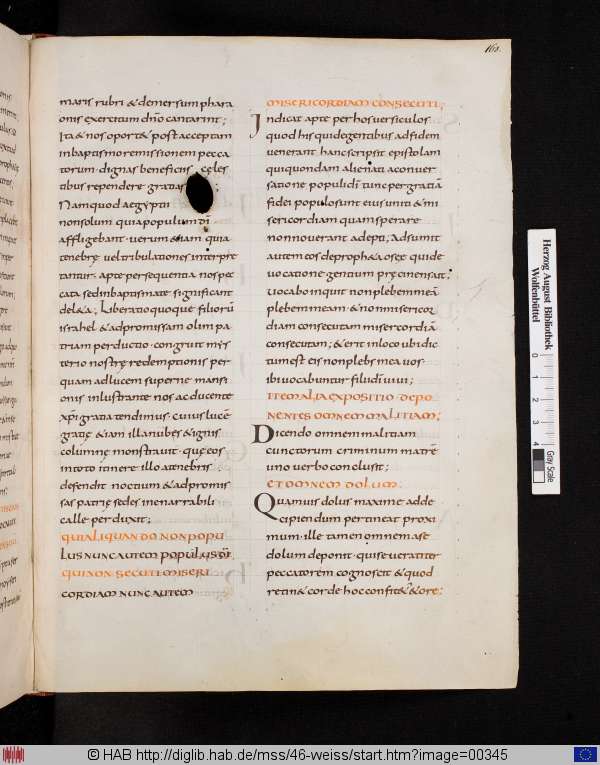 168.
maris rubri & demersum phara
onis exercitum dño cantarint;
Ita & nos oport& post acceptam
inbaptismo remissionem pecca
torum · dignas beneficiis cęles
tibus rependere gratias;
Namquod aegypti
nonsolum quia populum dī
affligebant · verum &iam quia
tenebrę vel tribulationes interpre
tantur · apte persequentia nos pec
cata sed inbaptismate significant
del&a; Liberatio quoque filiorū
israhel & adpromissam olim pa
triam perductio · congruit mys
terio nostrę redemptionis per
quam adlucem supernę mansi
onis inlustrante nos ac ducente
xp̄i gratia tendimus · cuius lucē
gratię &iam illa nubes & ignis
columnę monstravit · quę eos
intoto itinere illo atenebris
defendit noctium & adpromis
sas patrię sedes inenarrabili
calle perduxit;
QUI ALIQUANDO NON POPU
LUS NUNC AUTEM POPULUS DĪ;
QUI NON SECUTI MISERI
CORDIAM NUNC AUTEM
MISERICORDIAM CONSECUTI;
Indicat apte per hos versiculos
quod his qui degentibus ad fidem
venerant hanc scripsit epistolam
qui quondam alienati aconver
satione populi dī tunc per gratiā
fidei populo sunt eius uniti & mi
sericordiam quam sperare
non noverant adepti; Adsumit
autem eos deproph&a oseę qui de
vocatione gentium pręcinens ait;
vocabo inquit non plebem meā
plebem meam · & non misericor
diam consecutam misercordiā
consecutam; & erit in loco ubi dic
tum est eis non plebs mea vos ·
ibi vocabuntur filii dī vivi;
ITEM ALIA EXPOSITIO DEPO
NENTES OMNEM MALITIAM;
Dicendo omnem malitiam
cunctorum criminum matrē
uno verbo conclusit;
ET OMNEM DOLUM;
Quamvis dolus maxime ad de
cipiendum pertineat proxi
mum · ille tamen omnem a se
dolum deponit · qui se veraciter
peccatorem cognoscit & quod
retin& corde · hoc confit&ur & ore;
Herzog August Bibliothek
Wolfenbüttel
0 1 2 3 4
Gray Scale
© HAB http://diglib.hab.de/mss/46-weiss/start.htm?image=00345